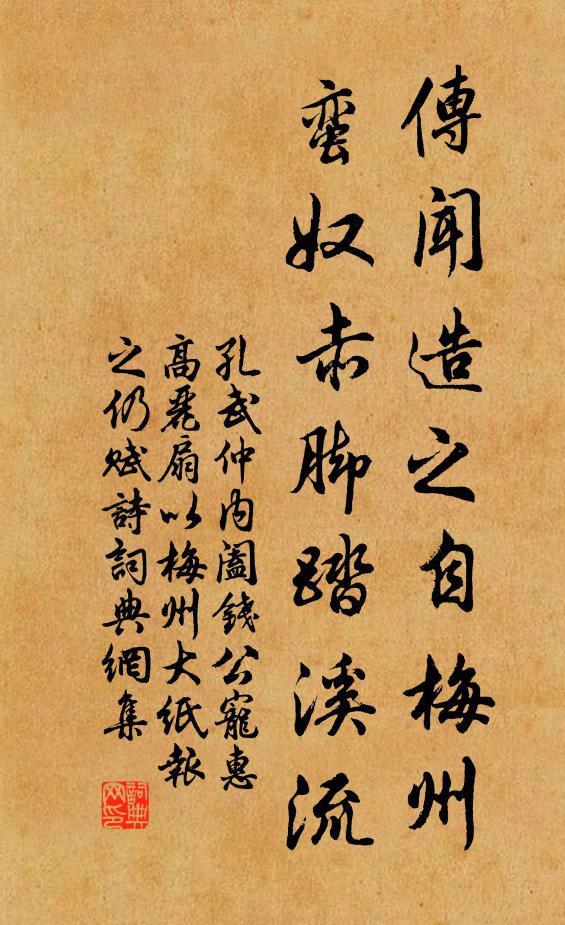 傳聞造之自梅州
蛮奴赤脚踏溪流
孔武仲内閤錢公寵惠
高麗扇以梅州大紙報
之仍賦詩詞典網集
詞典
网印